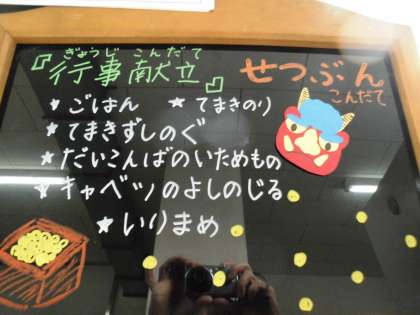 ぎょうじ こんだて
『行事献立』
せつぶん
こんだて
★ごはん ★てまきのり
★てまきずしのぐ
★だいこんばのいためもの
★キャベツのよしのじる
★いりまめ